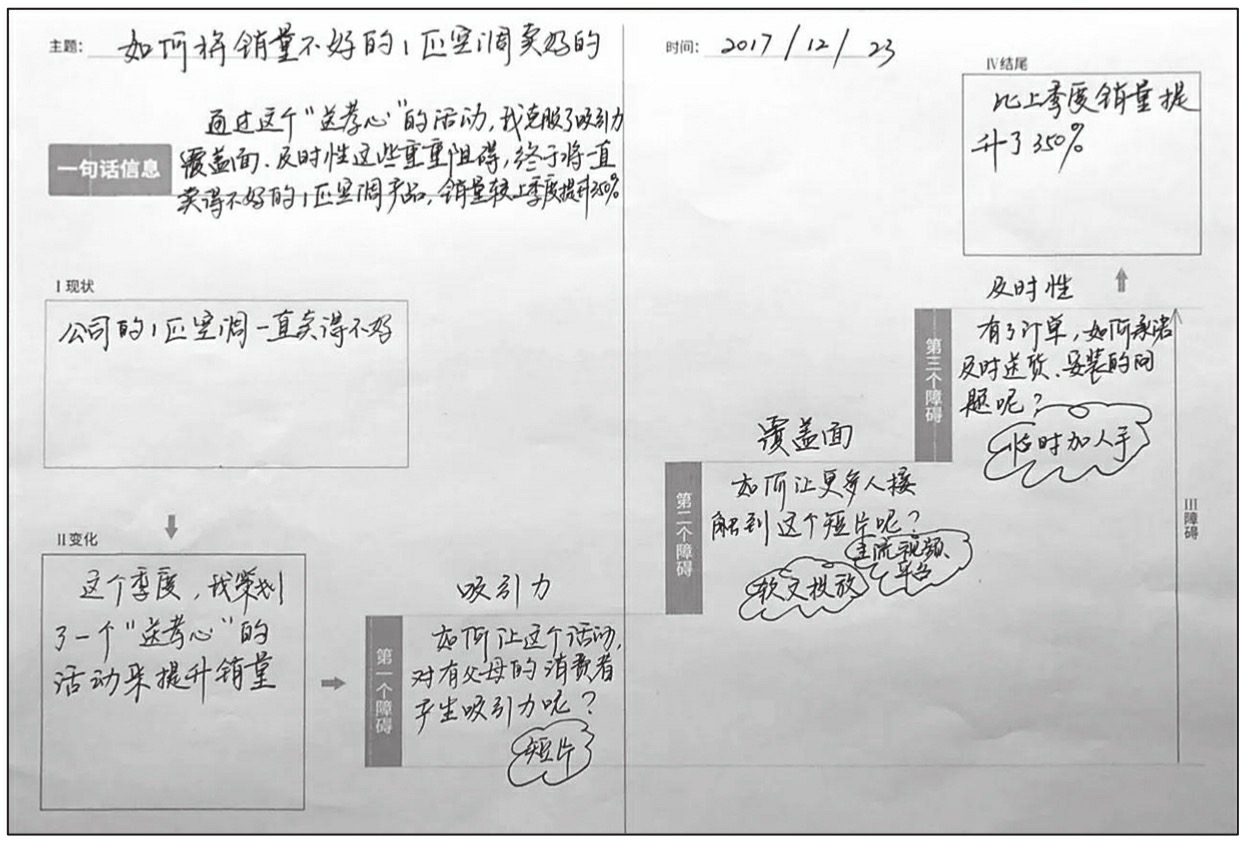 主题：如何将销量不好的1匹空调卖好的
时间：2017/12/23
一句话信息
通过这个“送孝心”的活动，我克服了吸引力
覆盖面、及时性这些重重阻碍，终于将一直
卖得不好的1匹空调产品，销量较上季度提升350%
I 现状
公司的1匹空调一直卖得不好
II 变化
这个季度，我策划
了一个“送孝心”的
活动来提升销量
吸引力
第一个障碍
如何让这个活动，
对有父母的消费者
产生吸引力呢？
短片
覆盖面
第二个障碍
如何让更多人接
触到这个短片呢？
主流视频、
平台
软文投放
及时性
第三个障碍
有了订单，如何承诺
及时送货、安装的问
题呢？
临时加人手
III 障碍
IV 结尾
比上季度销量提
升了350%